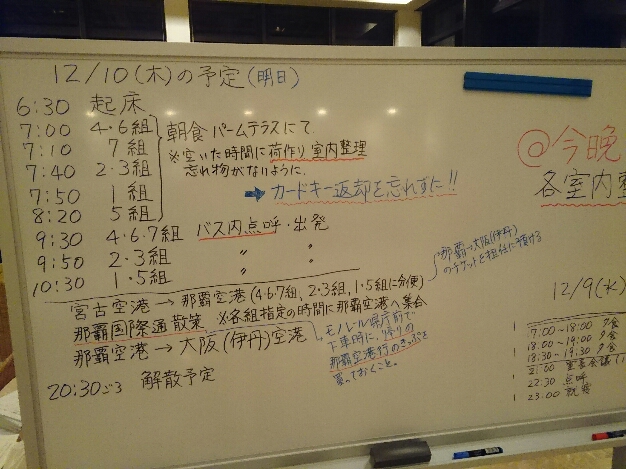 12/10(木)の予定(明日)
6:30 起床
7:00 4・6組
7:10 7組
7:40 2・3組
7:50 1組
8:20 5組
朝食 パームテラスにて.
※空いた時間に荷作り室内整理
忘れ物がないように.
➡ カードキー返却を忘れずに!!
9:30 4・6・7組 バス内点呼・出発
9:50 2・3組 〃 〃
10:30 1・5組 〃 〃
宮古空港 → 那覇空港(4・6・7組, 2・3組, 1・5組に分便)
那覇→大阪(伊丹)
のチケットを担任に預ける
那覇国際通散策. ※各組指定の時間に那覇空港へ集合
那覇空港 → 大阪(伊丹)空港
モノレール県庁前で
下車時に, 帰りの
那覇空港行のきっぷを
買っておくこと。
20:30ごろ 解散予定
@今晩
各室内整
12/9(水)
17:00~18:00 夕食
18:00~19:00 夕食
18:30~19:30 夕食
21:00 室長会議(
22:30 点呼
23:00 就寝